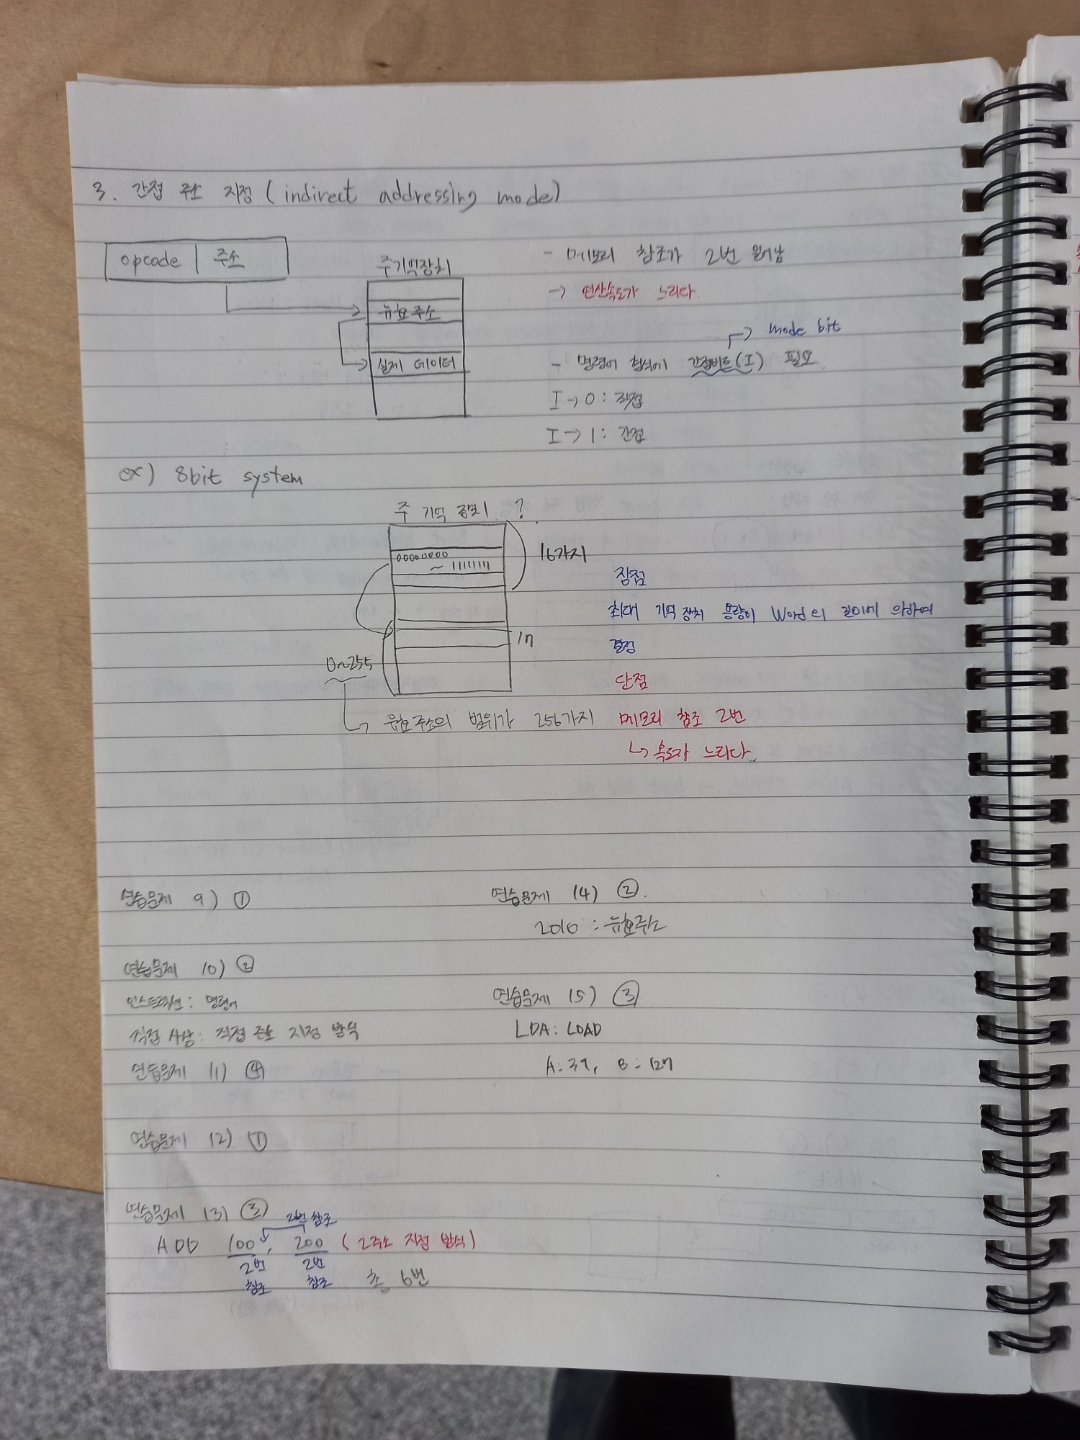 3. 간접 주소 지정 (indirect addressing mode)
opcode 주소
주기억장치
유효주소
실제 데이터
- 메모리 참조가 2번 일어남
→ 연산속도가 느리다
→ mode bit
- 명령어 형식에 간접비트(I) 필요
I → 0 : 직접
I → 1 : 간접
ex) 8bit system
주 기억 장치 ?
00000000
~ 11111111
16가지
0~255
→ 유효주소의 범위가 256가지
장점
최대 기억 장치 용량이 Word의 길이에 의하여
결정
단점
메모리 참조 2번
↳ 속도가 느리다.
연습문제 9) ①
연습문제 10) ②
인스트럭션 : 명령어
직접 사상 : 직접 주소 지정 방식
연습문제 11) ④
연습문제 12) ①
연습문제 13) ③
2번 참조
ADD 100, 200 (2주소 지정 방식)
2번 2번
참조 참조 총 6번
연습문제 14) ②
2010 : 유효주소
연습문제 15) ③
LDA : LOAD